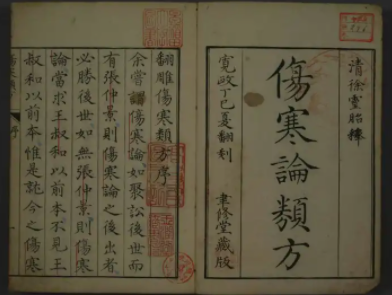 清徐靈胎釋
傷寒論類方
寬政丁巳夏翻刻
聿修堂藏版
翻雕傷寒類方序
余嘗謂傷寒論如聚訟後世而
有張仲景則傷寒論之後出者
必勝後世如無張仲景則傷寒
論當求王叔和以前本不見王
叔和以前本惟是就今之傷寒
序